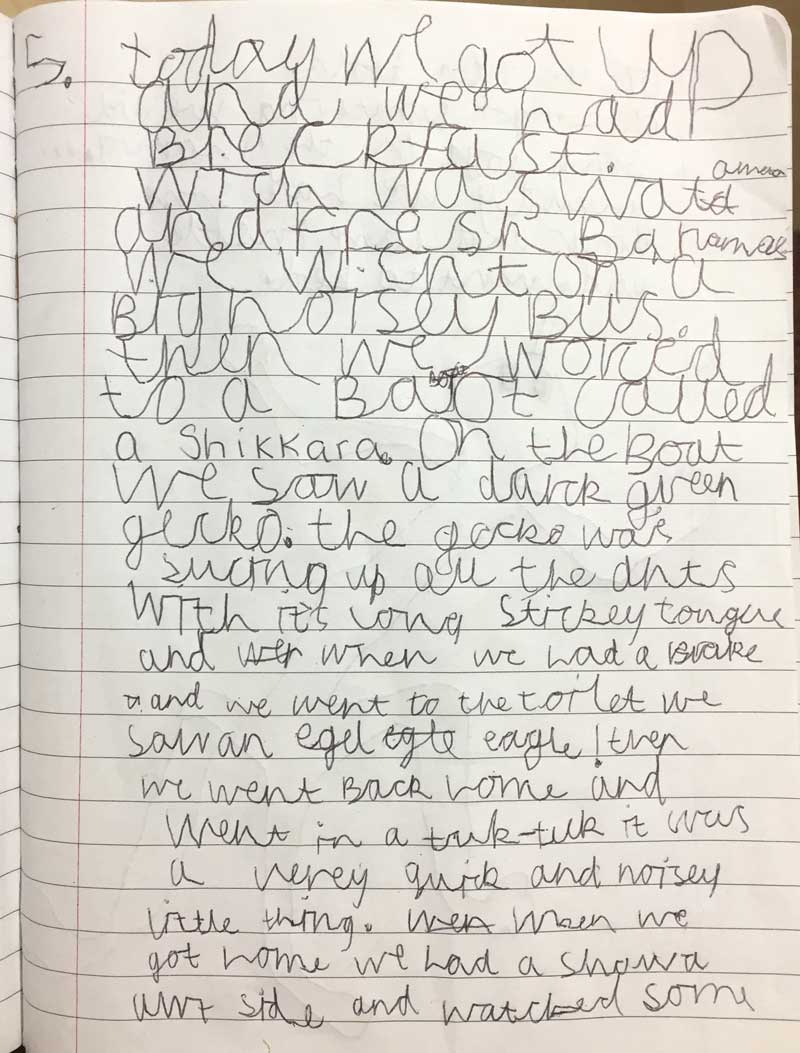 5. today we got up
and we had
Breckfast.
With was wata
and fresh Bananas
We went on a
Big noisey Bus.
then we worced
to a Baot called
a Shikkara. On the Boat
we saw a darck green
gecko. the gecko was
sucing up all the ants
With it's long Stickey tongue
and when we had a Brake
and we went to the toilet we
saw an egel eagle! then
we went Back home and
Went in a tuk-tuk it was
a verey quick and noisey
little thing. When we
got home we had a showa
uwt side and watched some